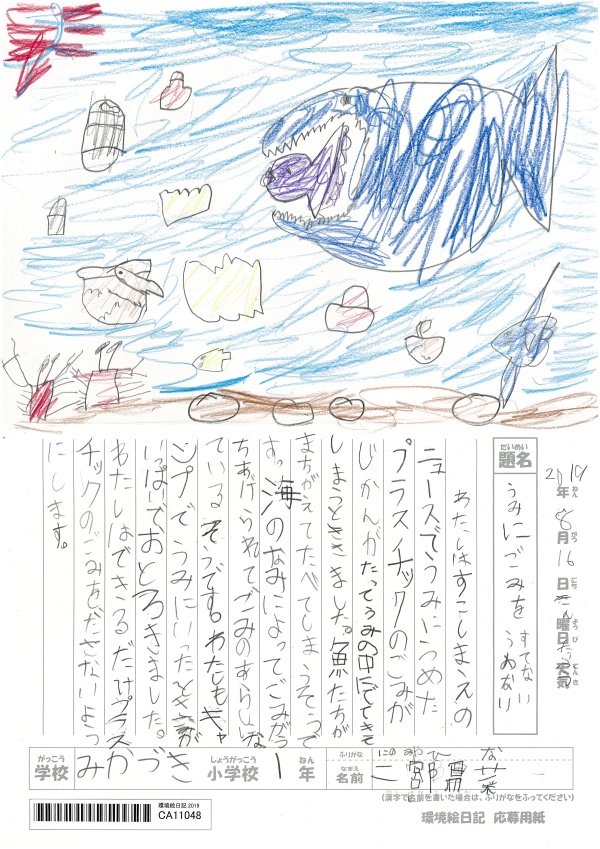 2019年 8月 16日 きん曜日 天気
ねん がつ にち ようび てんき
だいめい
題名
うみにごみを すてない
わたしはすこしまえの
ニュースでうみにうめた
プラスチックのごみが
じかんがたってうみの中にでてきて
しまうとききました。魚たちが
まちがえてたべてしまうそうで
す。海のなみによってごみがう
ちあげられてごみの
ているそうです。わたしもキャ
ンプでうみにいったとき が
いっぱいでおどろきました。
わたしはできるだけプラス
チックのごみをださないよう
にします。
がっこう しょうがっこう ねん ふりがな
学校 みかづき 小学校 1年
なまえ
名前 二宮 菜
(漢字で名前を書いた場合は、ふりがなをふってください)
環境絵日記 2019
CA11048
環境絵日記 応募用紙